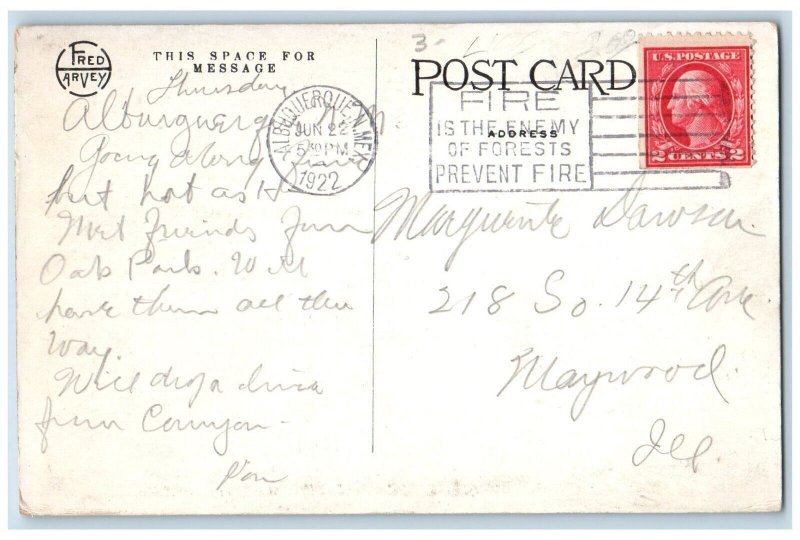 FRED HARVEY
THIS SPACE FOR
MESSAGE
Thursday
Alburquerque N.M.
Going along fine
but hot as H
Met friends from
Oak Park. Will
have them all the
way.
Will drop a line
from Cannyon-
POST CARD
ALBUQUERQUE, N. MEX.
JUN 22
5 PM
1922
FIRE
IS THE ENEMY
OF FORESTS
PREVENT FIRE
ADDRESS
U.S. POSTAGE
2 CENTS 2
Marguerite Dawson
218 So. 14th Ave.
Maywood.
Ill.